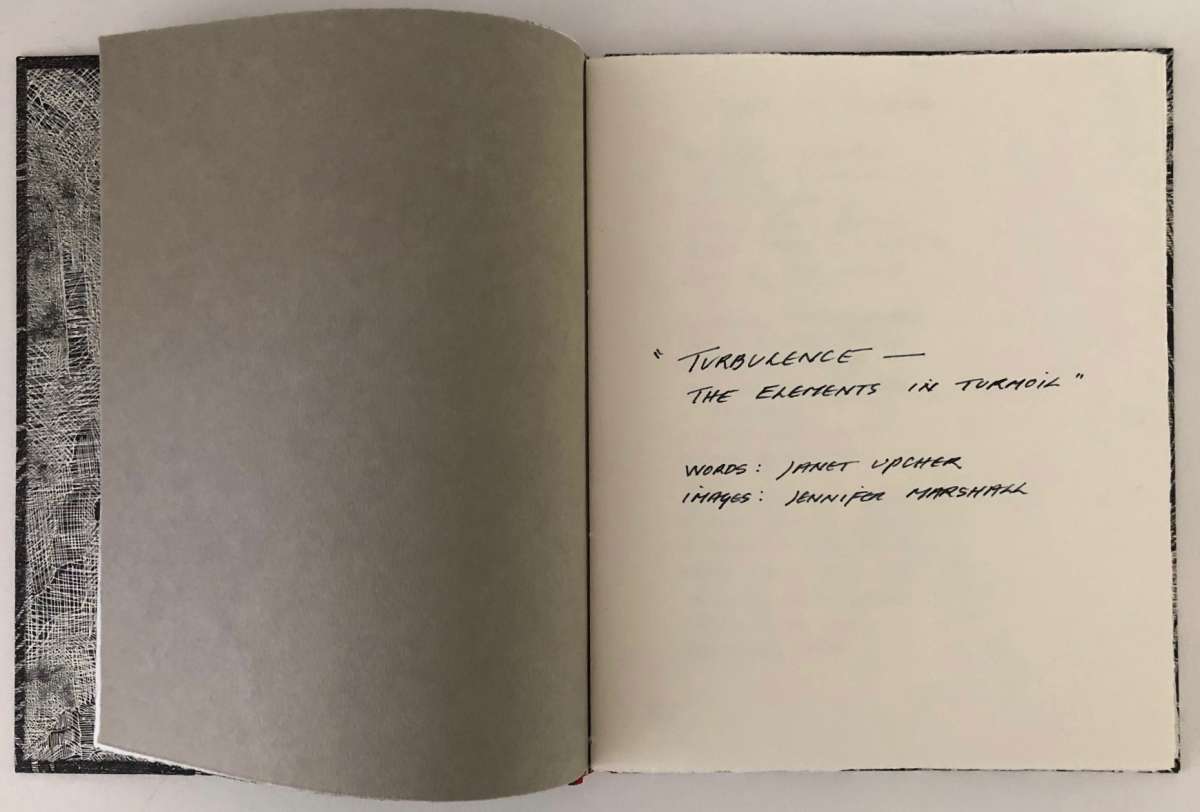 "TURBULENCE —
THE ELEMENTS IN TURMOIL"
WORDS: JANET UPCHER
IMAGES: JENNIFER MARSHALL